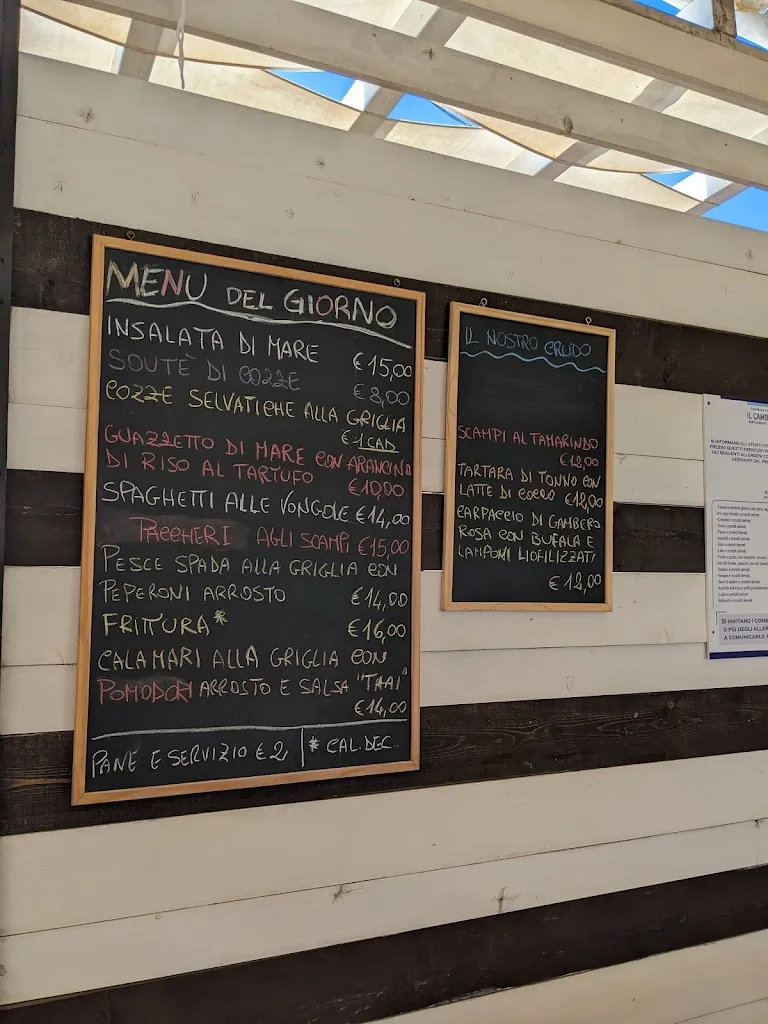 MENU DEL GIORNO
INSALATA DI MARE €15,00
SOUTÈ DI COZZE €8,00
COZZE SELVATICHE ALLA GRIGLIA
€1 CAD
GUAZZETTO DI MARE CON ARANCINO
DI RISO AL TARTUFO €10,00
SPAGHETTI ALLE VONGOLE €14,00
PACCHERI AGLI SCAMPI €15,00
PESCE SPADA ALLA GRIGLIA CON
PEPERONI ARROSTO €14,00
FRITTURA* €16,00
CALAMARI ALLA GRIGLIA CON
POMODORI ARROSTO E SALSA "THAI"
€14,00
PANE E SERVIZIO €2 * CAL.DEC..
IL NOSTRO CRUDO
SCAMPI AL TAMARINDO
€12,00
TARTARA DI TONNO CON
LATTE DI COCCO €12,00
CARPACCIO DI GAMBERO
ROSA CON BUFALA E
LAMPONI LIOFILIZZATI
€12,00
IL CAMB
SI INVITANO I CONS
O PIÙ DEGLI ALLER
A COMUNICARLO A